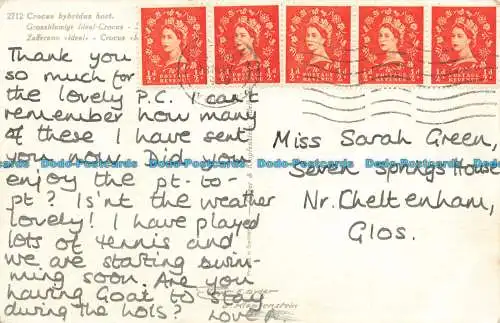 2712 Crocus hybridus hort.
Grossblumige Ideal-Crocus -
Zafferano «Ideal» - Crocus
Thank you
so much for
the lovely P.C. I can't
remember how many
of these I have sent
you now. Did you
enjoy the pt-to-
pt? Is'nt the weather
lovely! I have played
lots of tennis and
we are starting swim-
ming soon. Are you
having Goat to stay
during the hols? Love A.
½d POSTAGE REVENUE ½d
½d POSTAGE REVENUE ½d
½d POSTAGE REVENUE ½d
½d POSTAGE REVENUE ½d
½d POSTAGE REVENUE ½d
Miss Sarah Green,
Seven Springs House
Nr. Cheltenham,
Glos.
Dodo-Postcards Dodo-Postcards Dodo-Postcards Dodo-Postcards